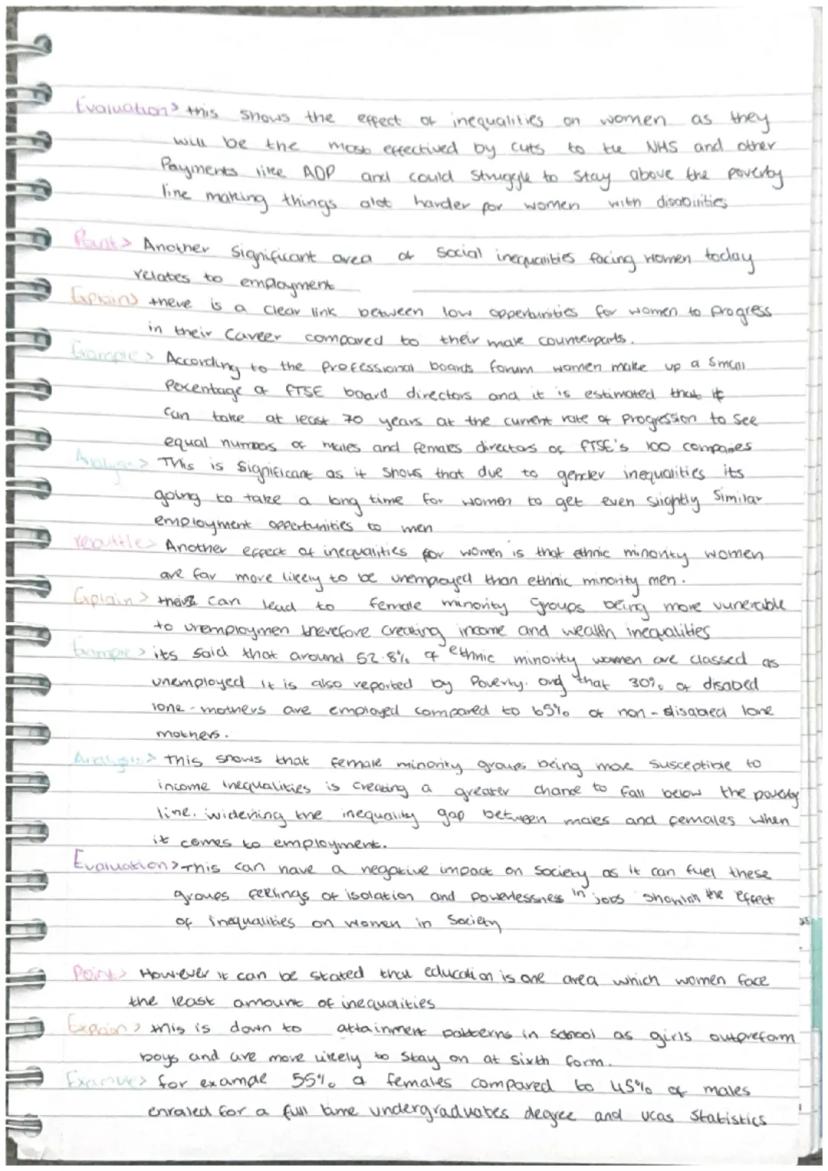 Evaluation> this shows the effect of inequalities on women as they
will be the most effectived by cuts to the NHS and other
Payments like ADP and could struggle to stay above the poverty
line making things alot harder for women with disabilities
Point> Another significant area of social inequalities facing women today
relates to employment
Explain> there is a clear link between low opportunities for women to progress
in their career compared to their male counterparts.
Example> According to the professional boards forum women make up a small
Pecentage of FTSE board directors and it is estimated that it
can take at least 70 years at the current rate of progression to see
equal numbers of males and females directors of FTSE's 100 companies
Analysis> This is significant as it shows that due to gender inequalities its
going to take a long time for women to get even slightly similar
employment opportunities to men
rebuttle> Another effect of inequalities for women is that ethnic minority women
are far more likely to be unemployed than ethnic minority men.
Explain> can lead to female minority groups being more vunerable
to unemploymen therefore creating income and wealth inequalities
Example> its said that around 52.8% of ethnic minority women are classed as
unemployed it is also reported by Poverty.org that 30% of disabled
lone-mothers are employed compared to 65% of non-disabled lone
mothers.
Analysis> This shows that female minority groups being more susceptible to
income inequalities is creating a greater chance to fall below the poverty
line. widening the inequality gap between males and females when
it comes to employment.
Evaluation> This can have a negative impact on society as it can fuel these
groups feelings of isolation and powerlessness in jobs the effect
of inequalities on women in society
Point> However it can be stated that education is one area which women face
the least amount of inequalities
Explain> this is down to attainment patterns in school as girls outpreform
boys and are more likely to stay on at sixth form.
Example> for example 55% of females compared to 45% of males
enrolled for a full time undergraduates degree and ucas statistics